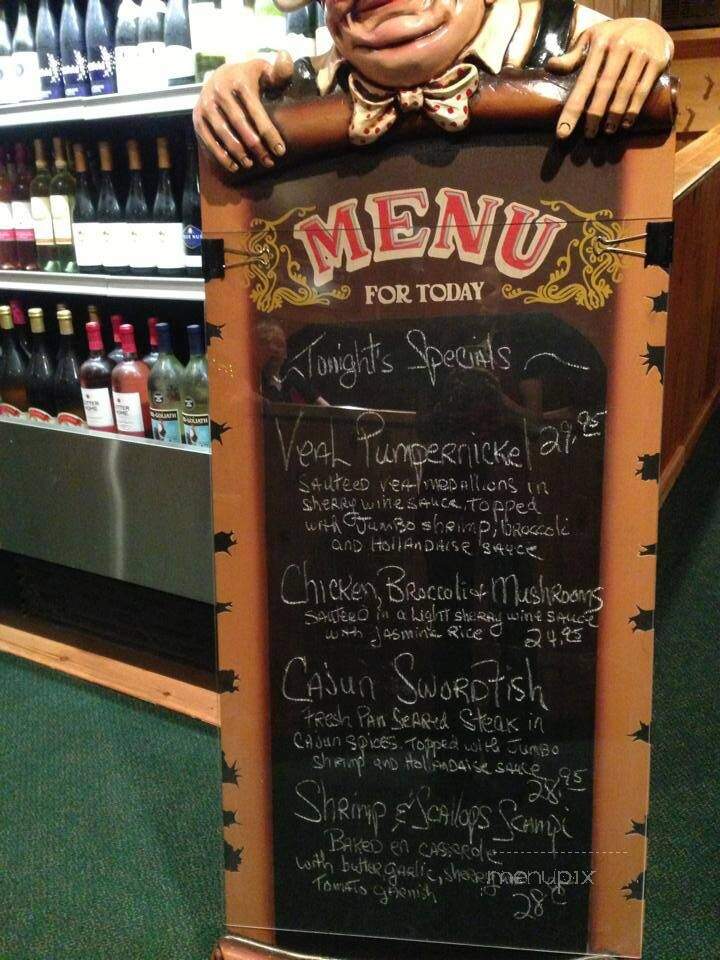 MENU
FOR TODAY
Tonight's Specials
Veal Pumpernickel 29.95
Sauteed veal medallions in
sherry wine sauce, topped
with Jumbo shrimp, broccoli
and Hollandaise sauce
Chicken, Broccoli & Mushrooms
Sauteed in a Light sherry wine sauce
with Jasmine Rice 24.95
Cajun Swordfish
Fresh Pan Seared Steak in
Cajun spices. Topped with Jumbo
shrimp and Hollandaise sauce
28.95
Shrimp & Scallops Scampi
Baked en casserole
with butter, garlic, sherry
Tomato garnish
28
menupix